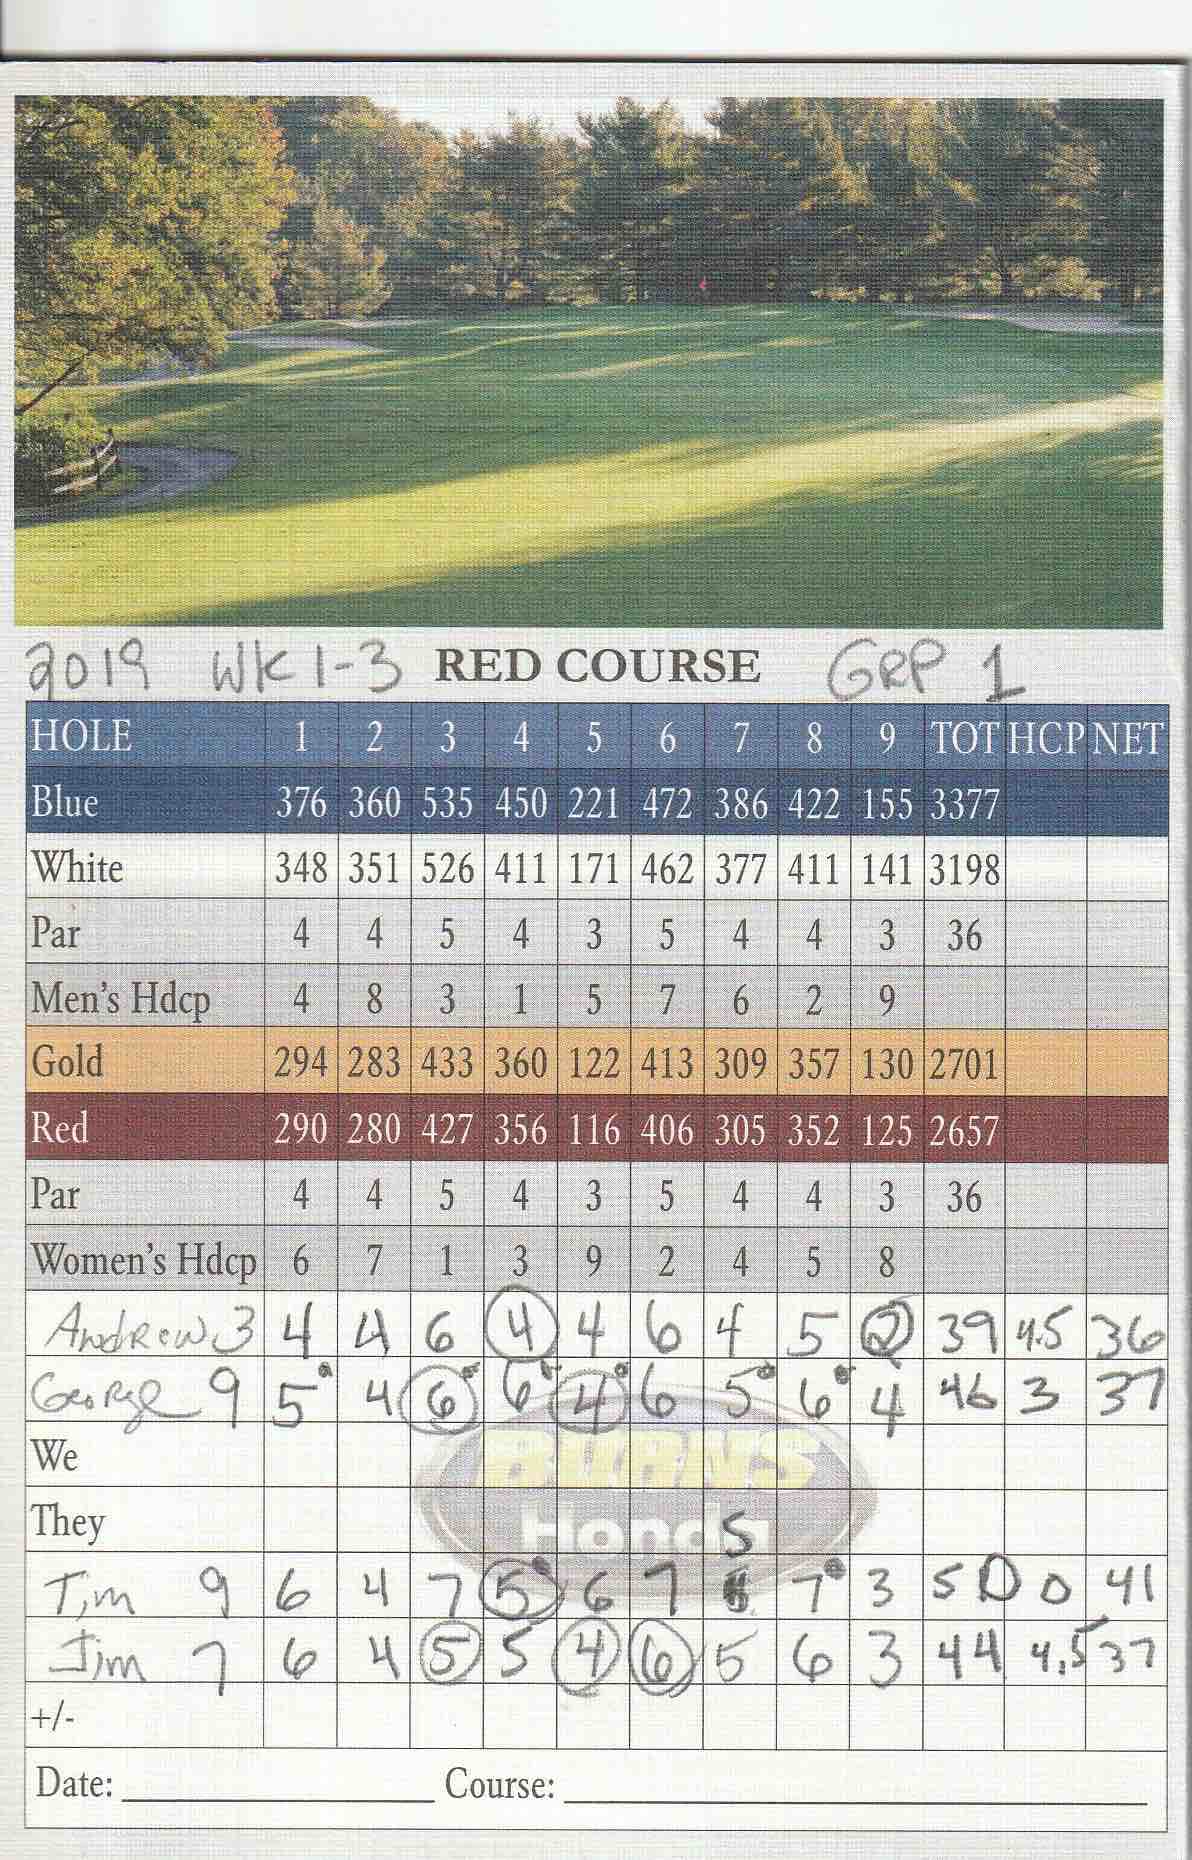 2019 WK 1-3 RED COURSE GRP 1
HOLE 1 2 3 4 5 6 7 8 9 TOT HCP NET
Blue 376 360 535 450 221 472 386 422 155 3377
White 348 351 526 411 171 462 377 411 141 3198
Par 4 4 5 4 3 5 4 4 3 36
Men's Hdcp 4 8 3 1 5 7 6 2 9
Gold 294 283 433 360 122 413 309 357 130 2701
Red 290 280 427 356 116 406 305 352 125 2657
Par 4 4 5 4 3 5 4 4 3 36
Women's Hdcp 6 7 1 3 9 2 4 5 8
Andrew 3 4 4 6 4 4 6 4 5 2 39 4.5 36
George 9 5 4 6 6 4 6 5 6 4 46 3 37
We
BURNS
They
Honda
5
Tim 9 6 4 7 5 6 7 7 3 50 0 41
Jim 7 6 4 5 5 4 6 5 6 3 44 4.5 37
+/-
Date: Course: